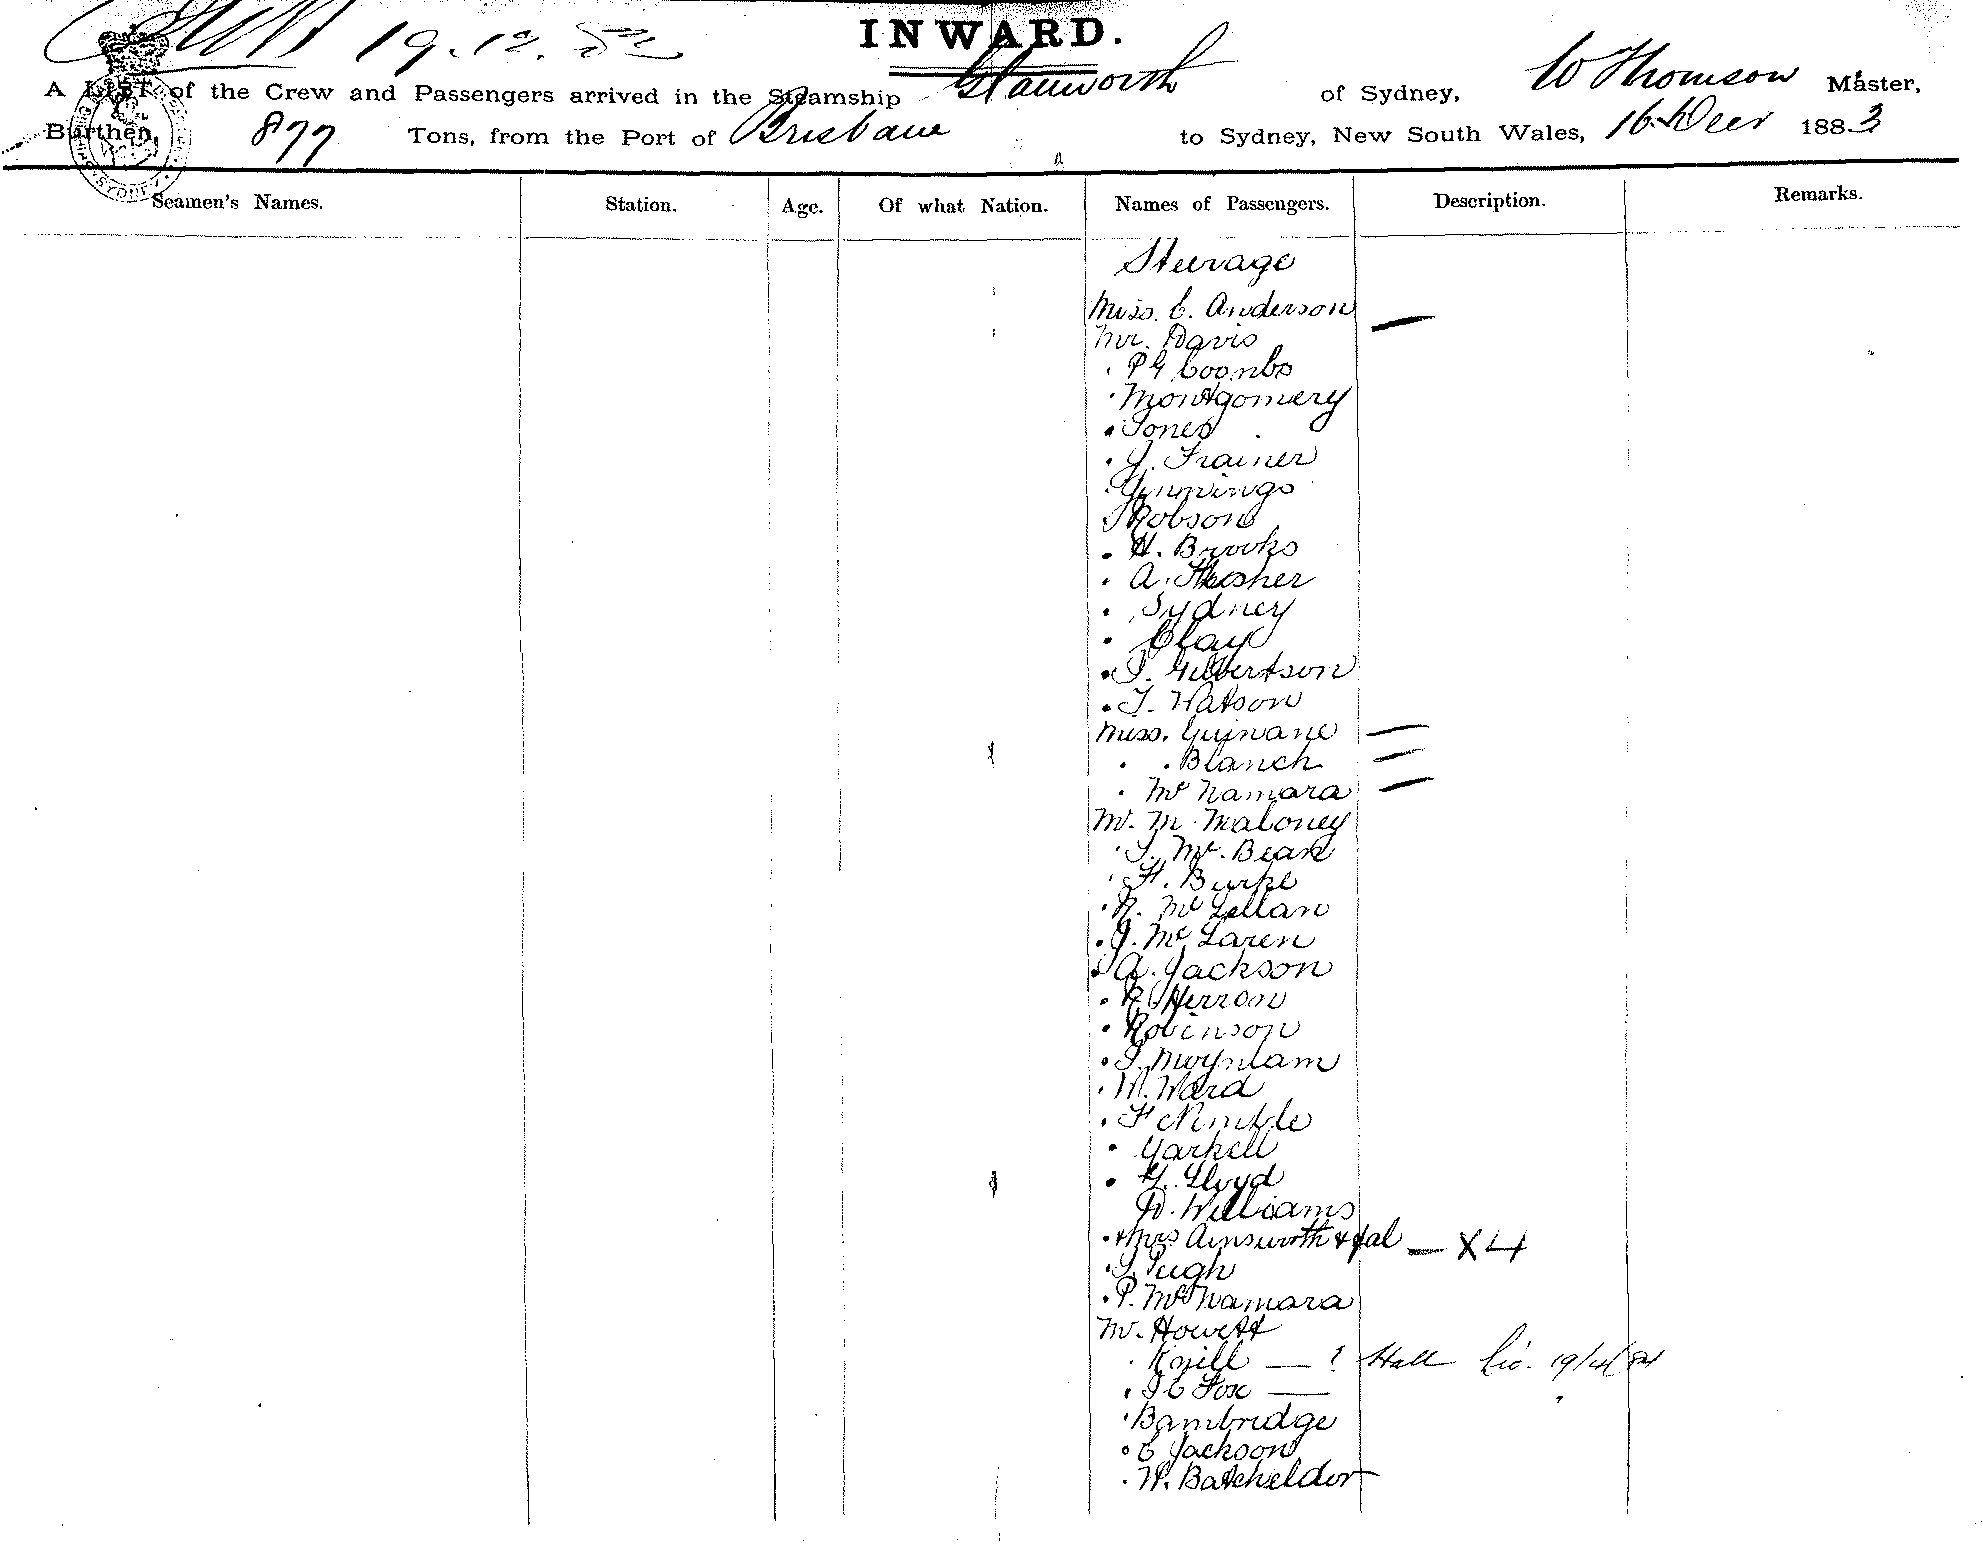 19.12.
INWARD.
A LIST of the Crew and Passengers arrived in the Steamship Glanworth of Sydney, W Thomson Master,
Burthen, 877 Tons, from the Port of Brisbane to Sydney, New South Wales, 16 Decr 1883
Seamen's Names. Station. Age. Of what Nation. Names of Passengers. Description. Remarks.
Steerage
Miss. C. Anderson —
Mr. Davis
P G Coombs
Montgomery
Jones
J. Trainer
Jennings
Robson
H. Brooks
A.
Sydney
Clay
J. Gilbertson
T. Watson
Miss. Guinane —
" Blanch —
" Mc Namara —
Mr. M. Maloney
J. Mc. Bean
H. Burke
R. Mc Lellan
J. Mc Laren
A. Jackson
R Herron
Robinson
J. Moyniam
W. Ward
F
Yarkell
G. Lloyd
D. Williams
" + Mrs Ainsworth + fal — X 4
J. Pugh
P. McNamara
Mr. Howett
Knill — ? Hall Lio. 19/4/84
J C Fox —
Bambridge
C Jackson
W. Batcheldor